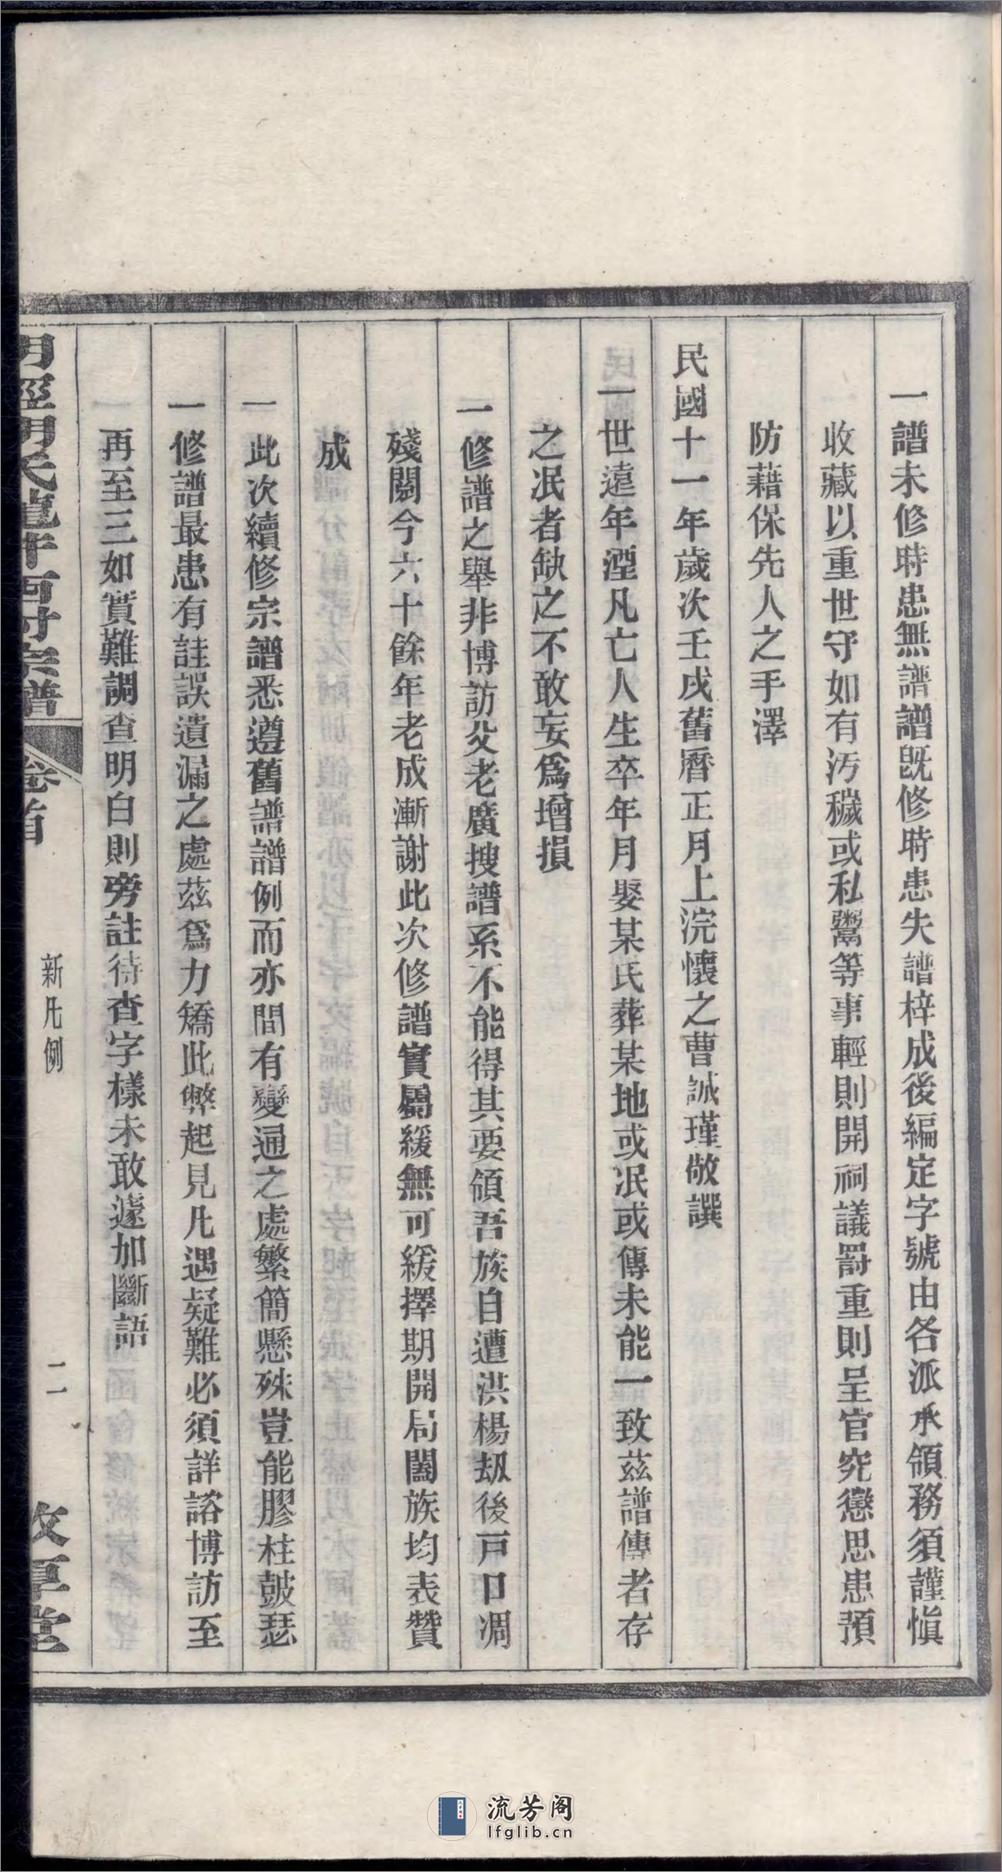 一譜未修時患無譜譜旣修時患失譜梓成後編定字號由各派承領務須謹愼
收藏以重世守如有汚穢或私鬻等事輕則開祠議罸重則呈官究懲思患預
防藉保先人之手澤
民國十一年歲次壬戌舊曆正月上浣懷之曹誠瑾敬譔
一世遠年湮凡亡人生卒年月娶某氏葬某地或泯或傳未能一致茲譜傳者存
之泯者缺之不敢妄爲增損
一修譜之舉非博訪父老廣搜譜系不能得其要領吾族自遭洪楊刼後戸口凋
殘閱今六十餘年老成漸謝此次修譜實屬緩無可緩擇期開局闔族均表贊
成
一此次續修宗譜悉遵舊譜譜例而亦間有變通之處繁簡懸殊豈能膠柱鼓瑟
一修譜最患有註誤遺漏之處茲爲力矯此弊起見凡遇疑難必須詳諮博訪至
再至三如實難調查明白則旁註待查字樣未敢遽加斷語
明經胡氏龍井西村宗譜 卷首 新凡例 二 敦厚堂
流芳阁
lfglib.cn